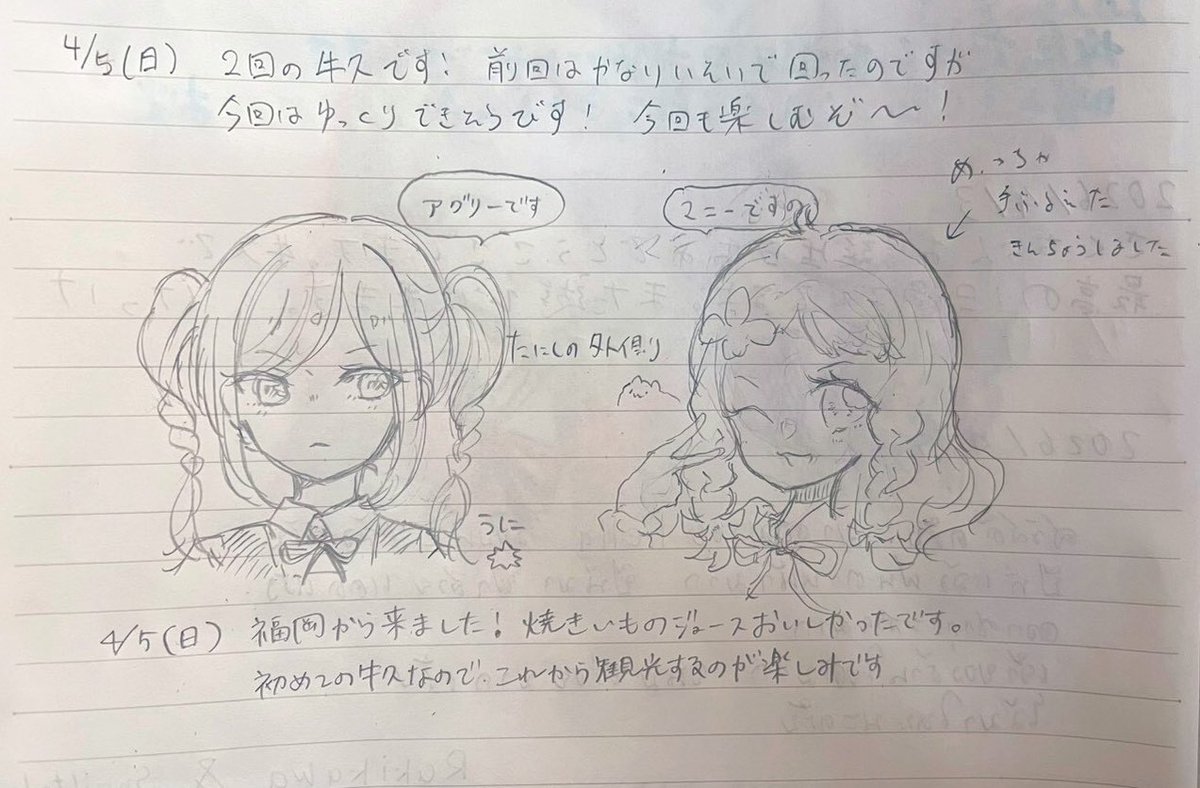 4/5(日) 2回の牛久です! 前回はかなりいそいで回ったのですが
今回はゆっくりできそうです! 今回も楽しむぞ〜!
めっちゃ
手ふるえた
きんちょうしました
アグリーです
マニーですの
たにしの外側り
うに
4/5(日) 福岡から来ました! 焼きいものジュースおいしかったです。
初めての牛久なので、これから観光するのが楽しみです